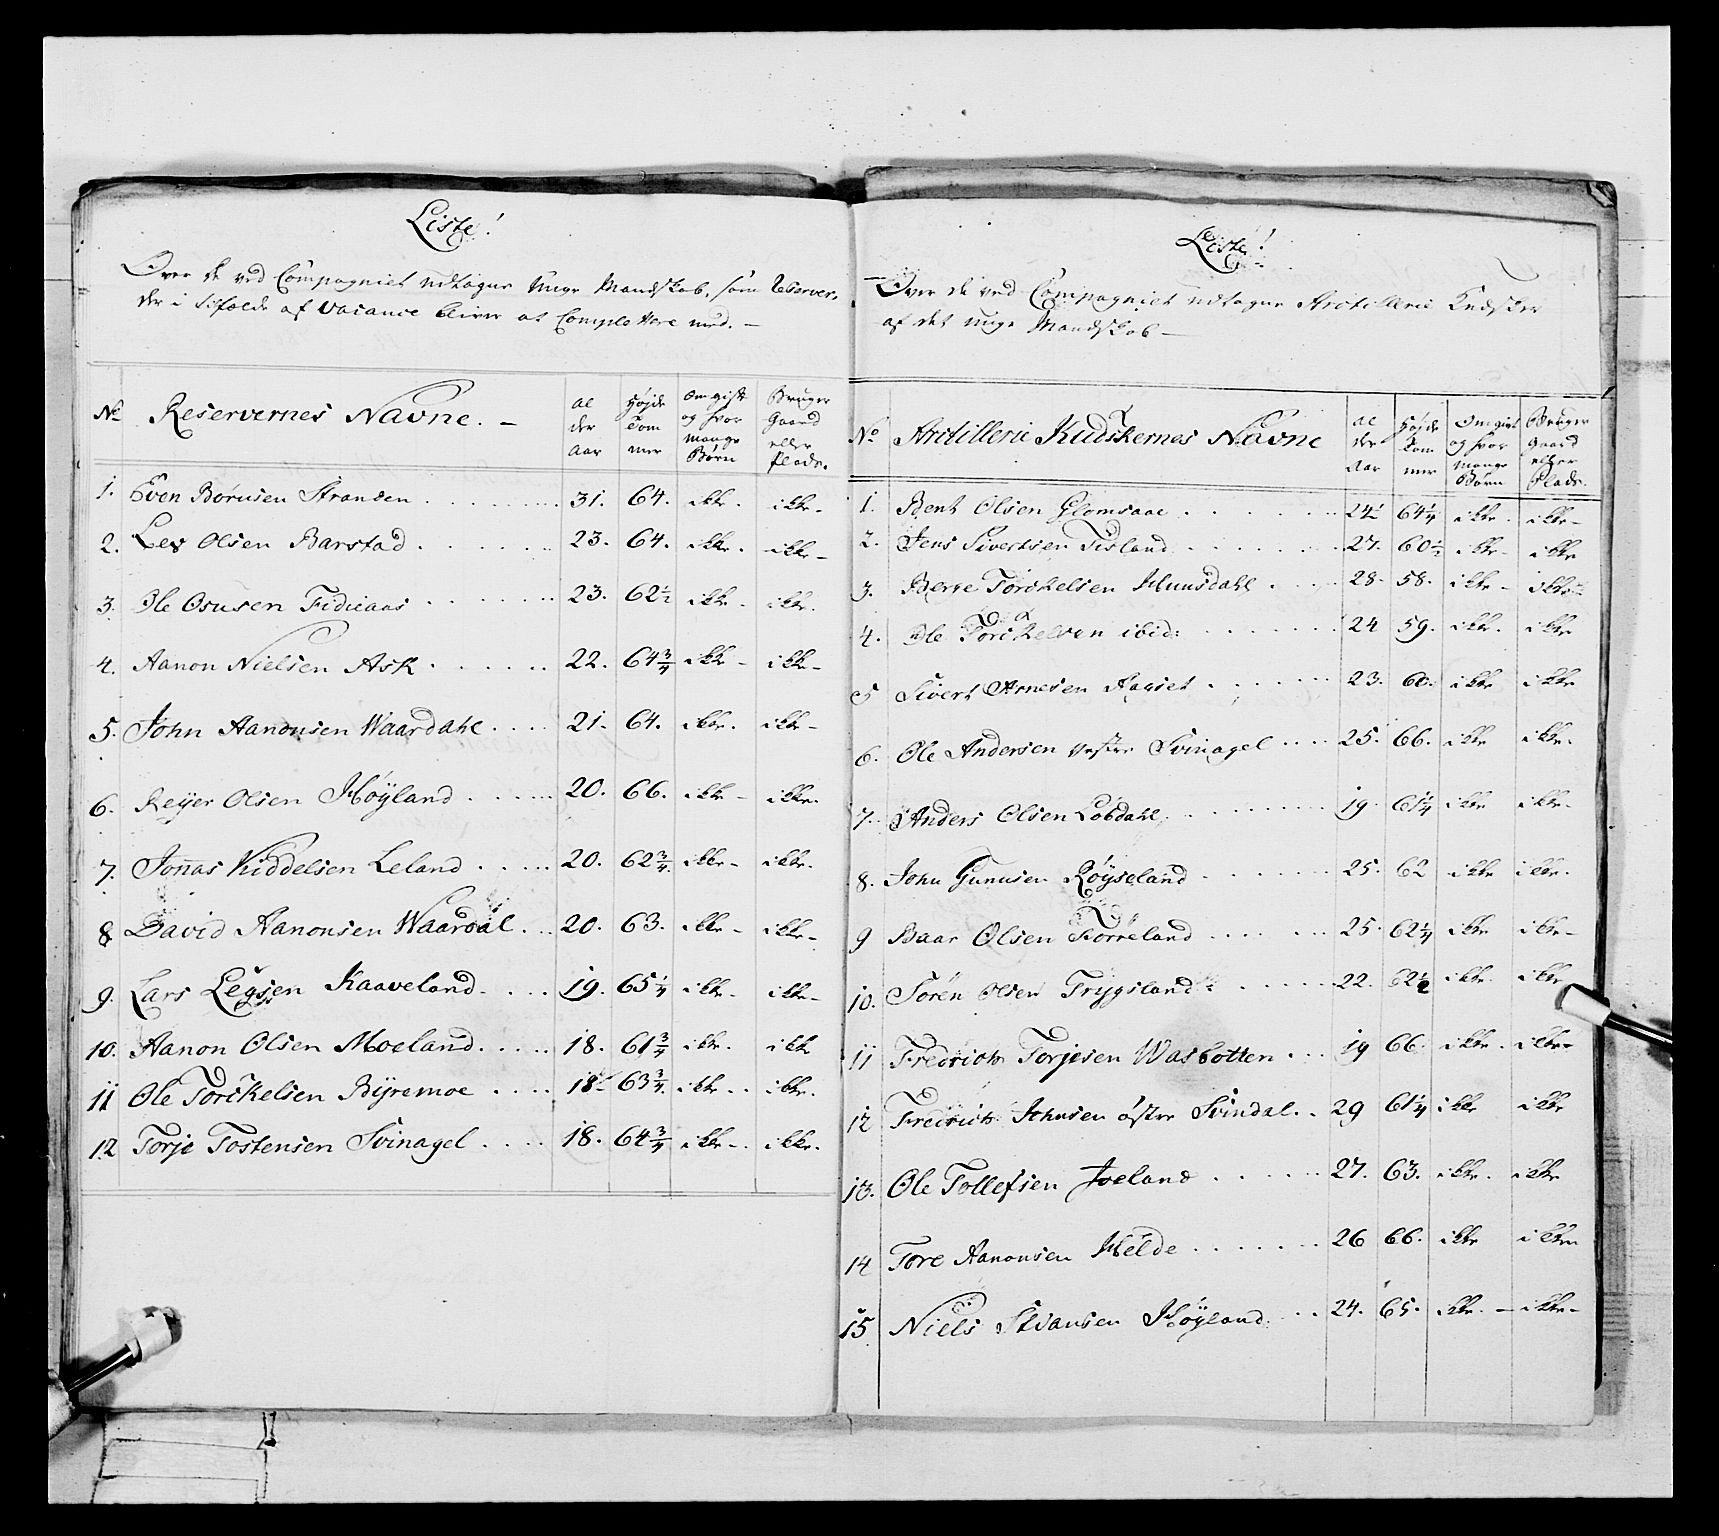 Liste!
Over de ved Compagniet udtagne Unge Mandskab, som Reserver,
der i tilfælde af Vacance bliver at Complettere med. –
No Reservernes Navne. – Al der Aar Højde Tom mer Om gift og hvor mange Børn Bruger Gaard eller Plads.
1. Even Børusen Stranden 31. 64. ikke. ikke.
2. Les Olsen Barstad 23. 64. ikke. ikke –
3. Ole Osusen Fidieaas 23. 62½ ikke. ikke.
4. Aanon Nielsen Ask 22. 64¾ ikke – ikke –
5. John Aanonsen Waardahl 21. 64. ikke. ikke –
6. Reyer Olsen Høyland 20. 66. ikke – ikke.
7. Jonas Kiddelsen Leland 20. 62¾ ikke – ikke.
8 David Aanonsen Waardal 20. 63. ikke – ikke –
9. Lars Legsen Kaaveland 19. 65¼ ikke. ikke –
10. Aanon Olsen Moeland 18. 61¾ ikke. ikke
11 Ole Torckelsen Byremoe 18 63¾ ikke. ikke.
12 Torje Tostensen Svinagel 18. 64¾ ikke –. ikke.
Liste!
Over de ved Compagniet udtagne Artillerie Kudsker
af det unge Mandskab –
No Artillerie Kudskernes Navne Al der Aar Højde Tom mer Om givt og hvor mange Børn Bruger Gaard eller Plads.
1. Bent Olsen Glomsaae 24½ 64¼ ikke. ikke –
2. Jens Sivertsen Tisland 27. 60½ ikke – ikke
3. Berre Torckelsen Huusdahl 28. 58. ikke – ikke –
4. Ole Torckelsen ibid: 24 59. ikke. ikke
5 Sivert Arnesen Aagset 23. 60. ikke ikke
6. Ole Andersen vestre Svinagel 25. 66. ikke ikke.
7. Anders Olsen Løbdahl 19. 61¼ ikke ikke.
8. John Gunusen Røyseland 25. 62 ikke ikke.
9 Baar Olsen Førreland 25. 62¼ ikke ikke –
10. Søren Olsen Trygsland 22. 62½ ikke. ikke
11 Fredrich Torjesen Wasbotten 19 66 ikke. ikke
12 Fredrich Johnsen østre Svindal 29 61¼ ikke ikke
13. Ole Tollefsen Joeland 27. 63. ikke. ikke
14 Tore Aanonsen Helde 26 66. ikke ikke
15 Niels Stiansen Høyland 24. 65. ikke. – ikke –